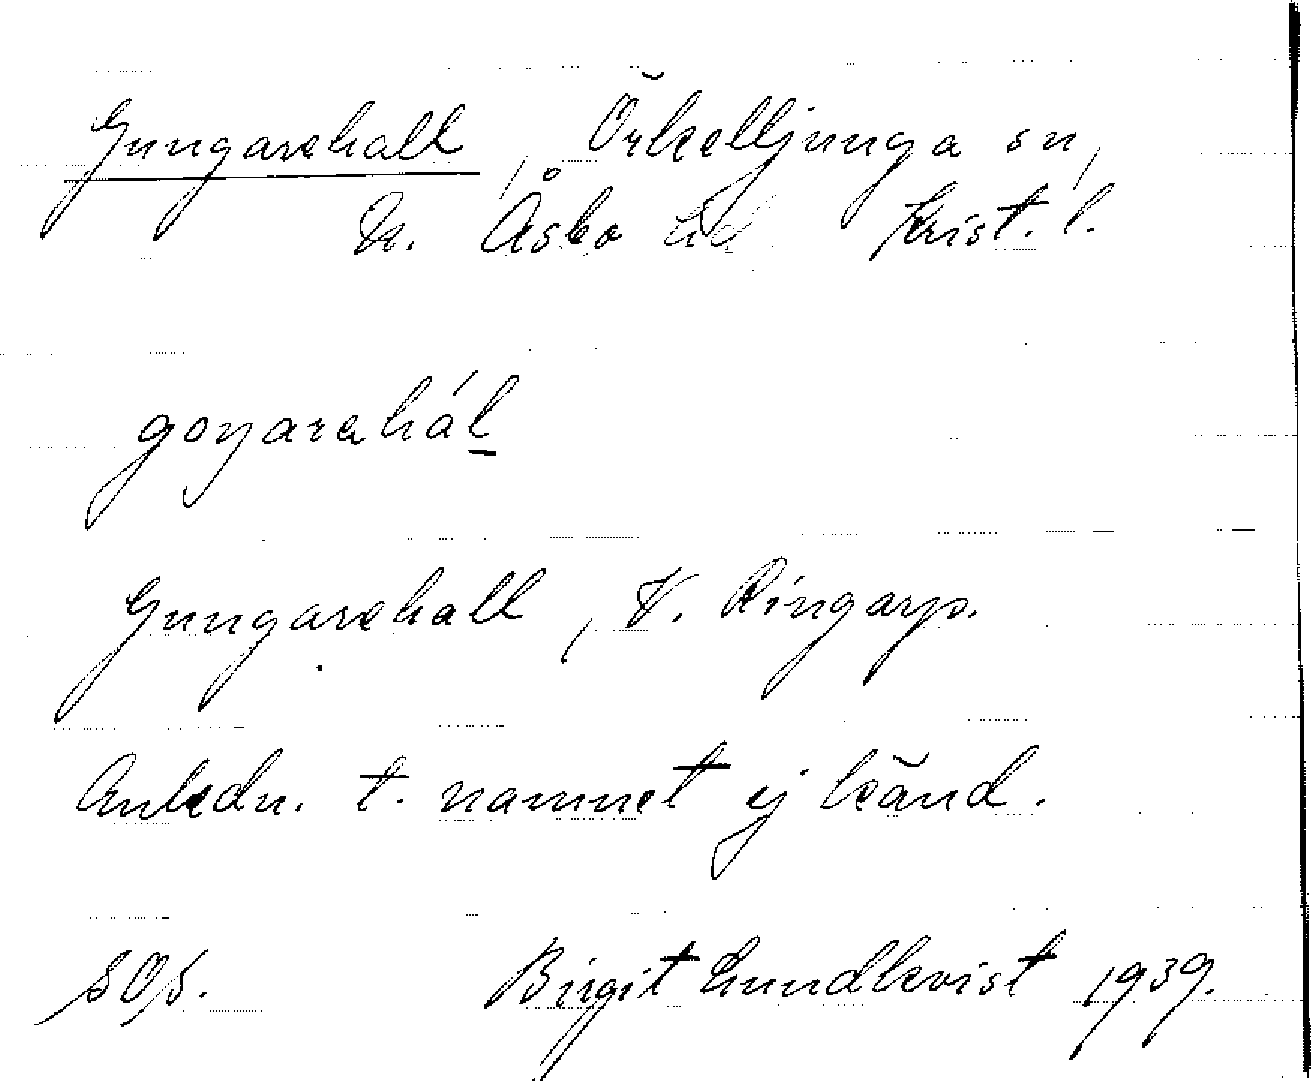 Gungarehall, Örkelljunga sn,
N. Åsbo hd Krist. l.
goŋarahál
Gungarehall, V. Ringarp.
Anledn. t. namnet ej känd.
Birgit Lundkvist 1939.